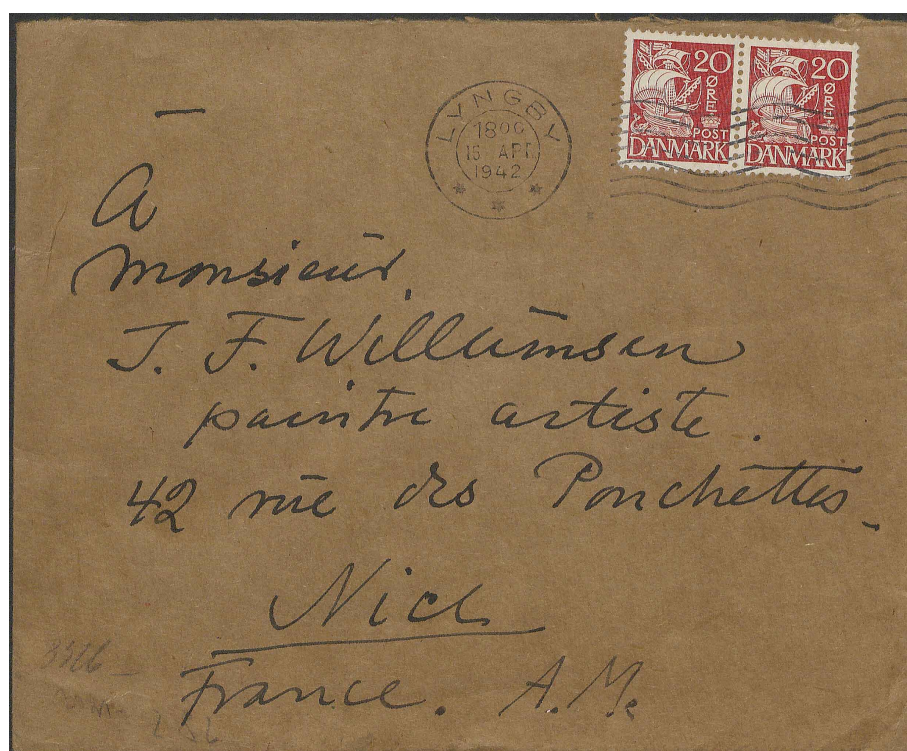 LYNGBY
1800
15 APR
1942
20 ØRE
POST
DANMARK
20 ØRE
POST
DANMARK
A
Monsieur,
J. F. Willumsen
paintre artiste.
42 rue des Ponchettes-
Nice
France. A.M.